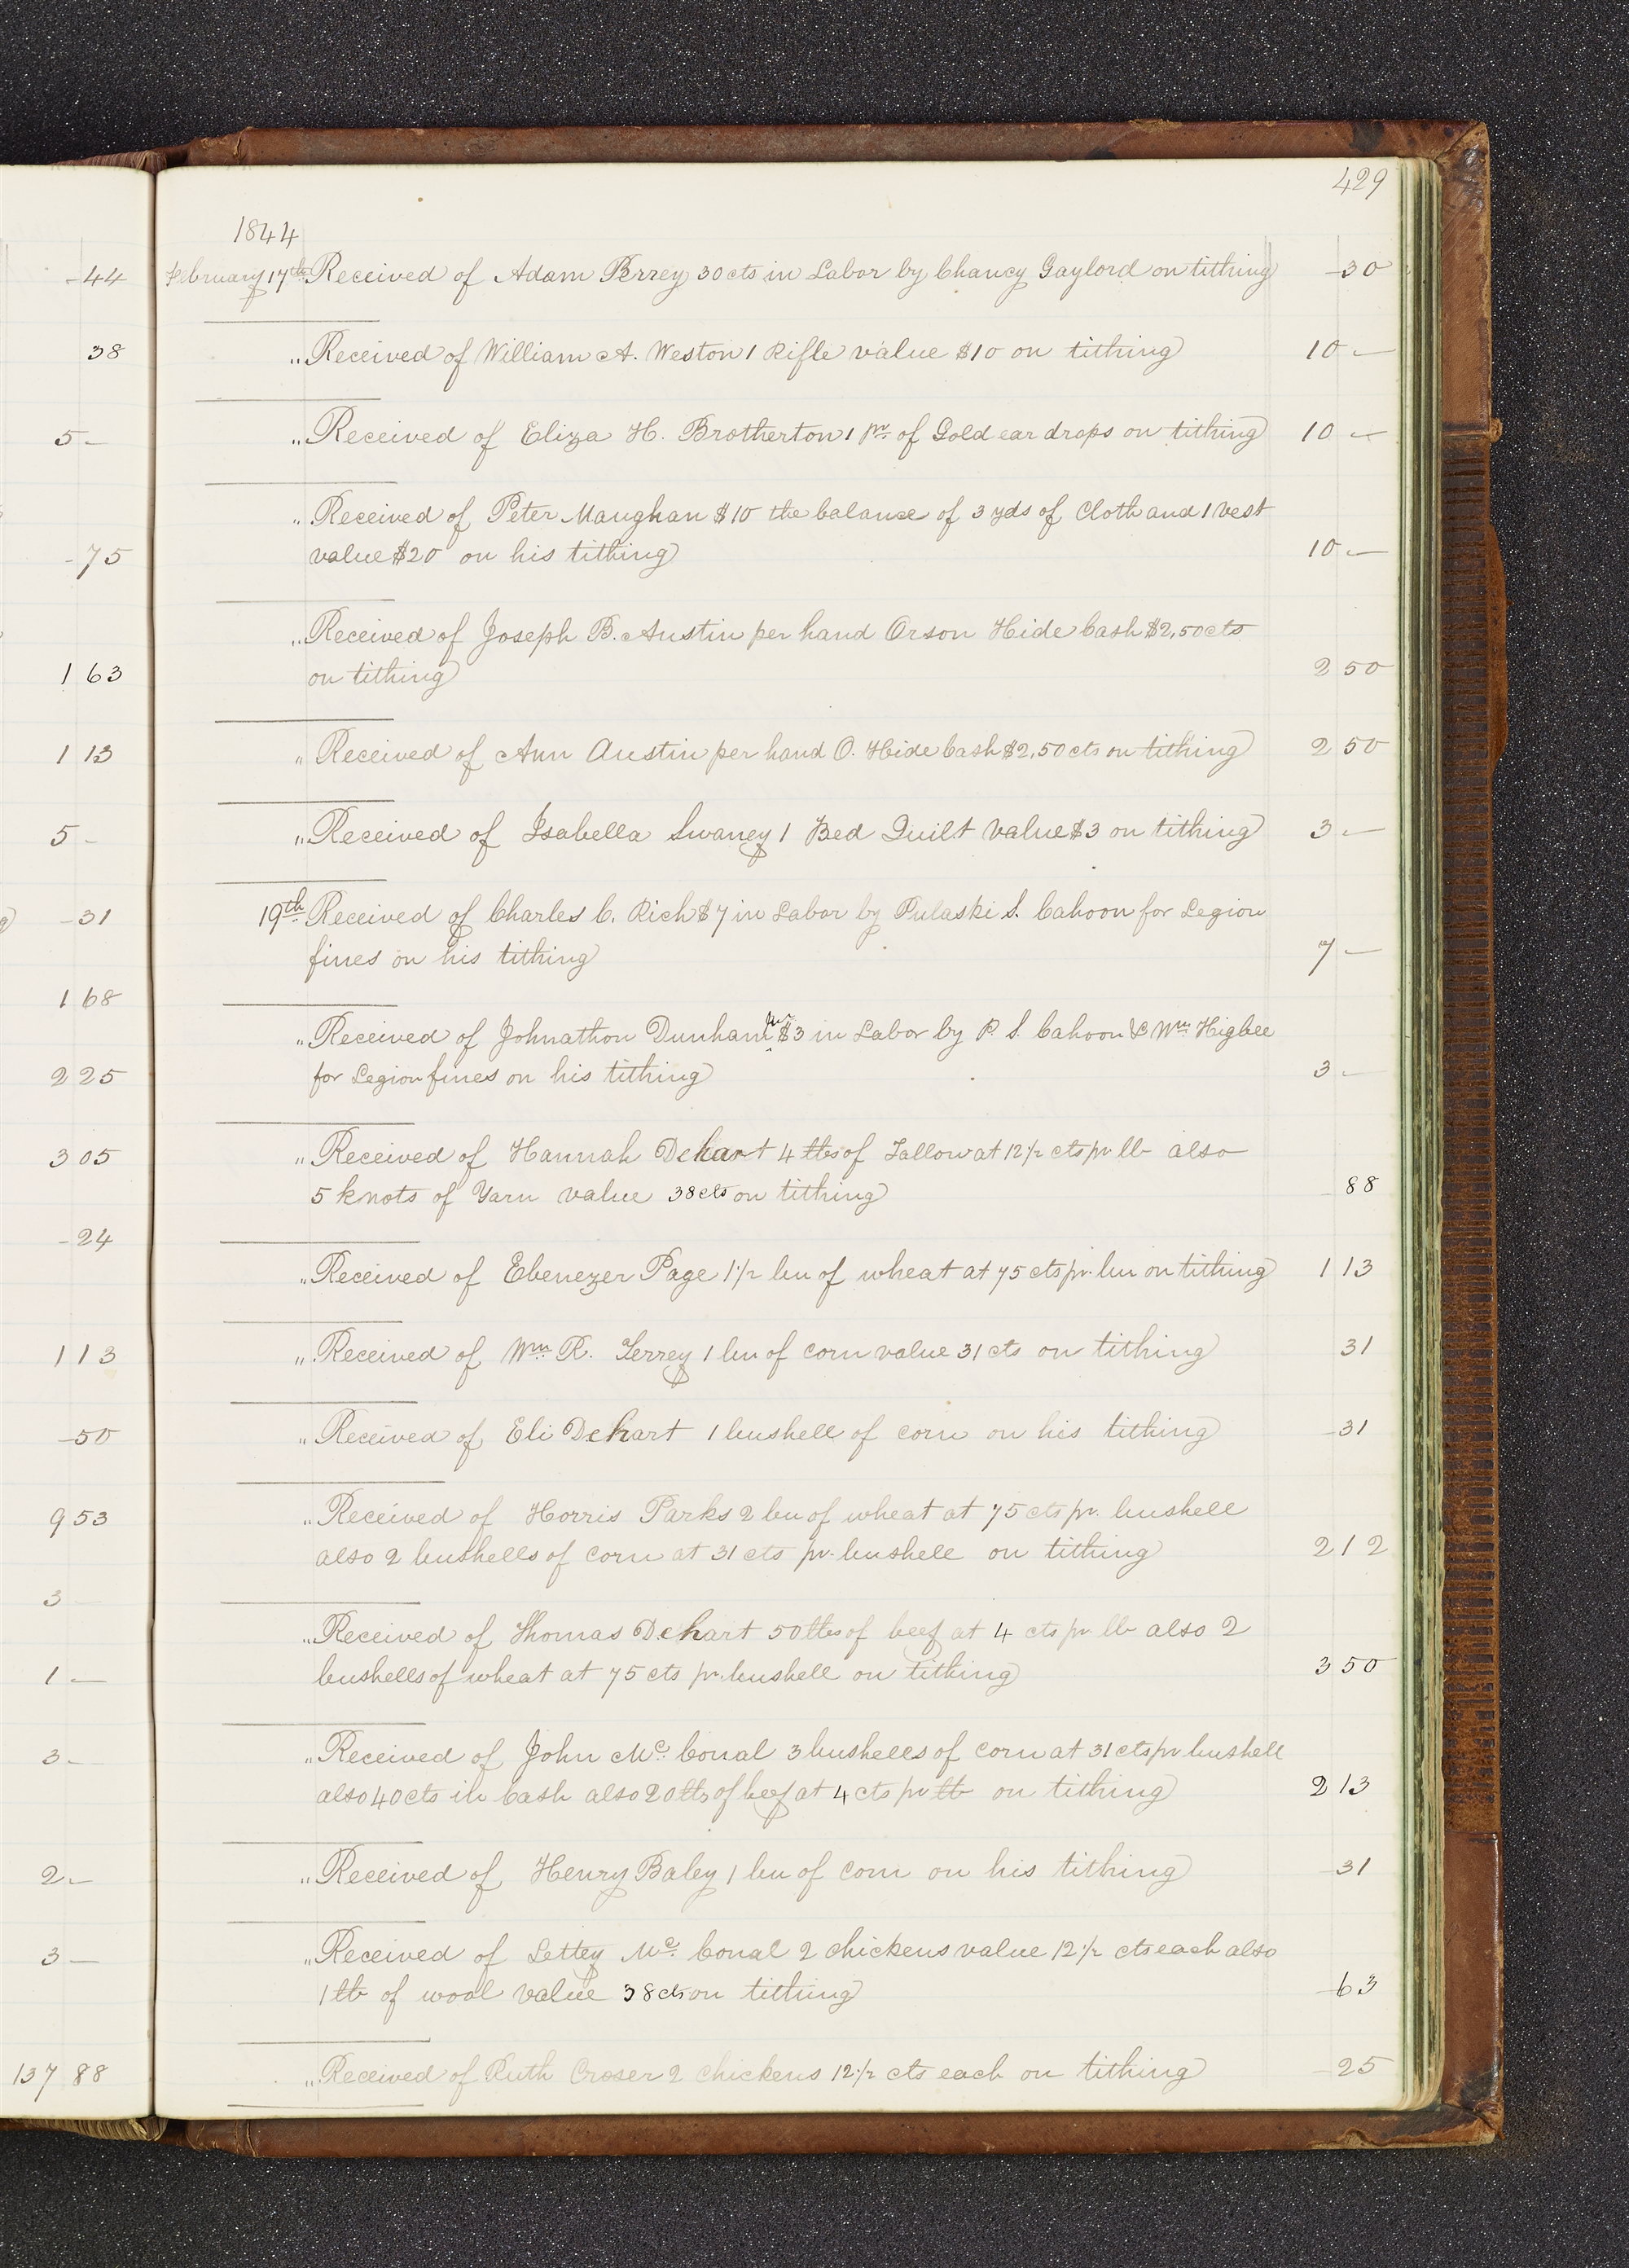 429
1844
-44
February 17th Received of Adam Perrey 30 cts in Labor by Chancy Gaylord on tithing -30
38
" Received of William A. Weston 1 Rifle value $10 on tithing 10 -
5 -
" Received of Eliza H. Brotherton 1 pr. of Gold ear drops on tithing 10 -
" Received of Peter Maughan $10 the balance of 3 yds of Cloth and 1 vest
-75
value $20 on his tithing 10 -
" Received of Joseph B. Austin per hand Orson Hide Cash $2,50 cts
1 63
on tithing 2 50
1 13
" Received of Ann Austin per hand O. Hide Cash $2,50 cts on tithing 2 50
5 -
" Received of Isabella Swaney 1 Bed Quilt value $3 on tithing 3 -
-31
19th Received of Charles C. Rich $7 in Labor by Pulaski S. Cahoon for Legion
fines on his tithing 7 -
1 68
" Received of Johnathon Dunham Jur $3 in Labor by P. S. Cahoon & Wm Higbee
2 25
for Legion fines on his tithing 3 -
3 05
" Received of Hannah Dehart 4 lbs of Tallow at 12 1/2 cts pr lb also
5 knots of Yarn value 38 cts on tithing 88
-24
" Received of Ebenezer Page 1 1/2 bu of wheat at 75 cts pr. bu on tithing 1 13
1 13
" Received of Wm. R. Terrey 1 bu of corn value 31 cts on tithing 31
-50
" Received of Eli Dehart 1 bushell of corn on his tithing -31
9 53
" Received of Horris Parks 2 bu of wheat at 75 cts pr. bushell
also 2 bushells of corn at 31 cts pr. bushell on tithing 2 12
3 -
" Received of Thomas Dehart 50 lbs of beef at 4 cts pr lb also 2
1 -
bushells of wheat at 75 cts pr. bushell on tithing 3 50
3 -
" Received of John Mc. Conal 3 bushells of corn at 31 cts pr bushell
also 40 cts in Cash also 20 lbs of beef at 4 cts pr lb on tithing 2 13
2 -
" Received of Henry Baley 1 bu of corn on his tithing -31
3 -
" Received of Lettey Mc. Conal 2 chickens value 12 1/2 cts each also
1 lb of wool value 38 cts on tithing -63
137 88
" Received of Ruth Croser 2 chickens 12 1/2 cts each on tithing -25